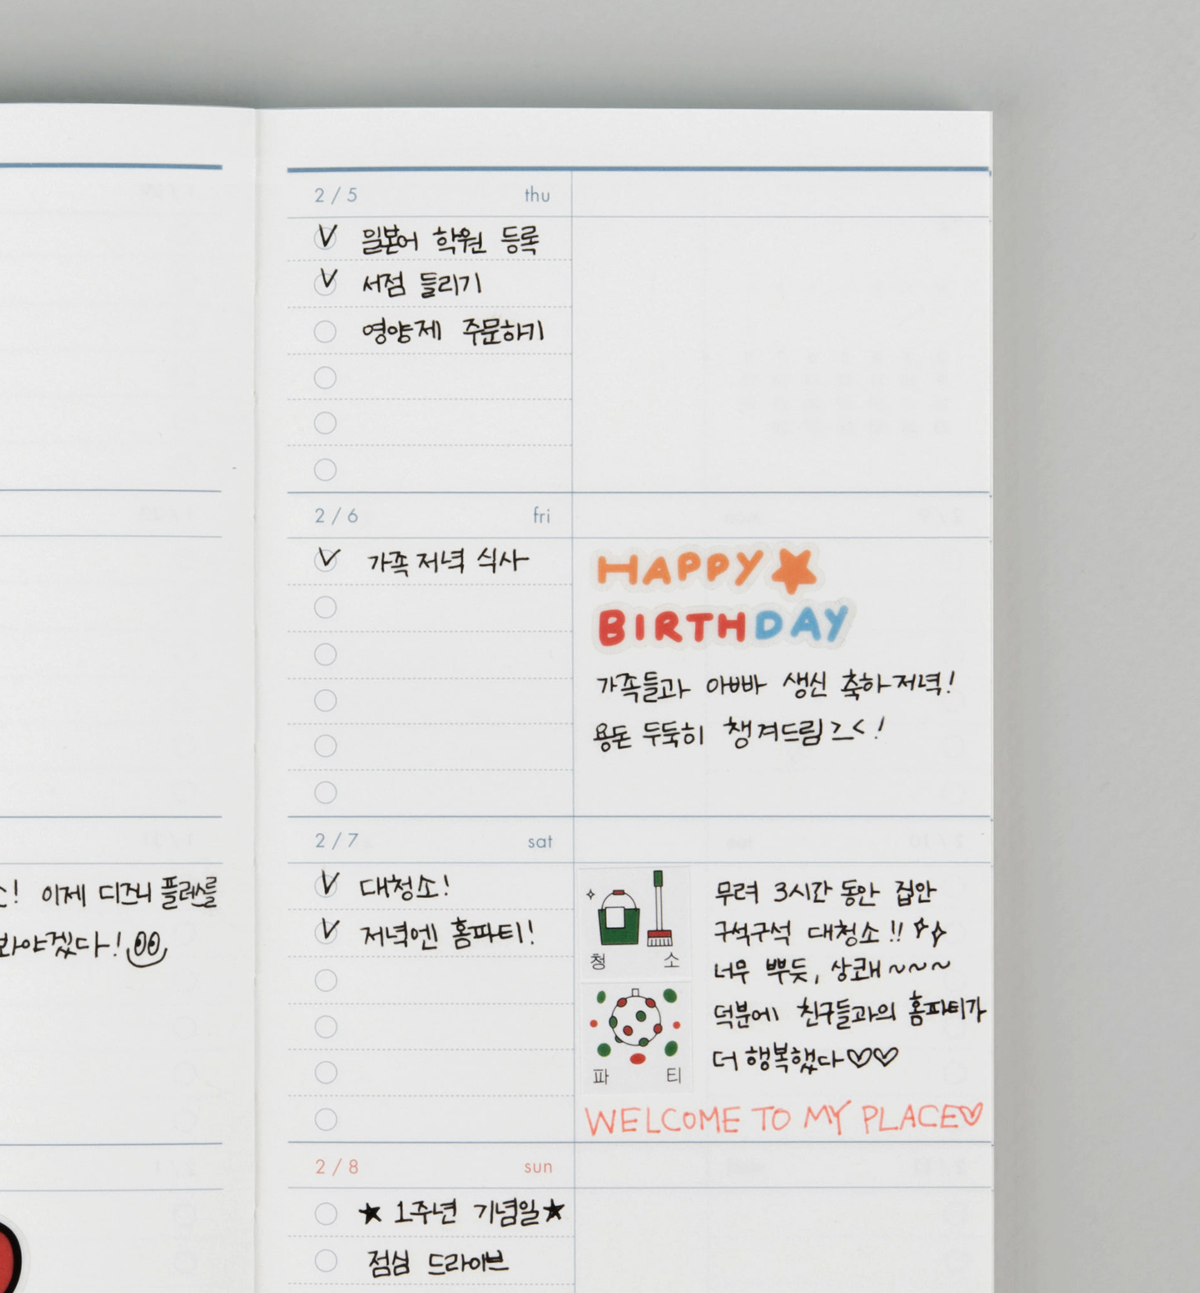 이제 디즈니 플러스를
봐야겠다!
2/5 thu
일본어 학원 등록
서점 들리기
영양제 주문하기
2/6 fri
가족 저녁 식사
HAPPY
BIRTHDAY
가족들과 아빠 생신 축하 저녁!
용돈 두둑히 챙겨드림 >.<!
2/7 sat
대청소!
저녁엔 홈파티!
청소
파티
무려 3시간 동안 집안
구석구석 대청소!!
너무 뿌듯, 상쾌~~~
덕분에 친구들과의 홈파티가
더 행복했다♡♡
WELCOME TO MY PLACE♡
2/8 sun
★ 1주년 기념일★
점심 드라이브